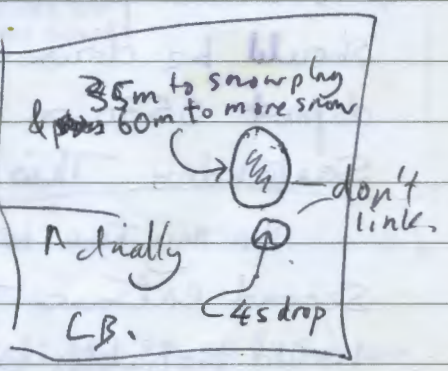 35m to snow plug
& 60m to more snow
don't
link.
Actually
CB.
4s drop